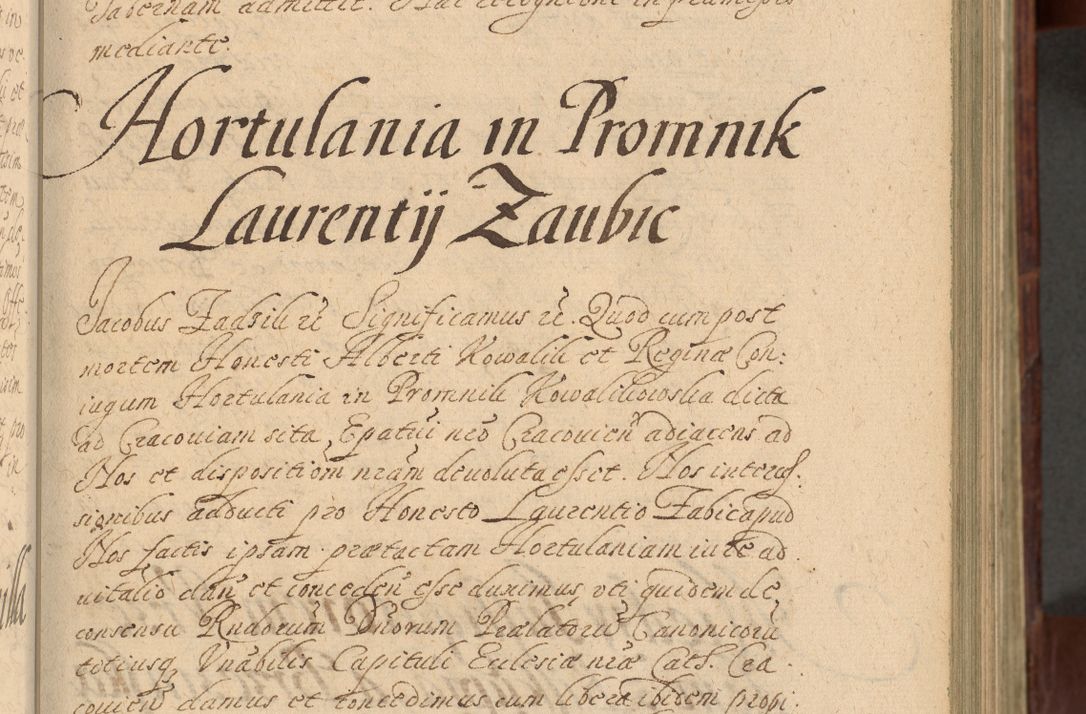 Tabernam admittit. Hac recognitione in præmissis
mediante.
Hortulania in Promnik
Laurentij Zaubic
Jacobus Zadzik etc Significamus etc. Quod cum post
mortem Honesti Alberti Kowalik et Reginæ Con:
iugum Hortulania in Promnik Kowalikowska dicta
ad Cracoviam sita, Epatui nrõ Cracovień adiacens ad
Nos et dispositiom nrãm devoluta esset. Nos interces:
sionibus adducti pro Honesto Laurentio Zabic apud
Nos factis ipsam prætactam Hortulaniam iure ad
vitalio dań et conceden̄ esse duximus, uti quidem de
consensu Rndorum Dnorum Prælatorũ Canonicorũ
totiusq Vnabilis Capituli Eclesiæ nræ Cath. Cra
covień damus et concedimus cum libera ibidem propi: